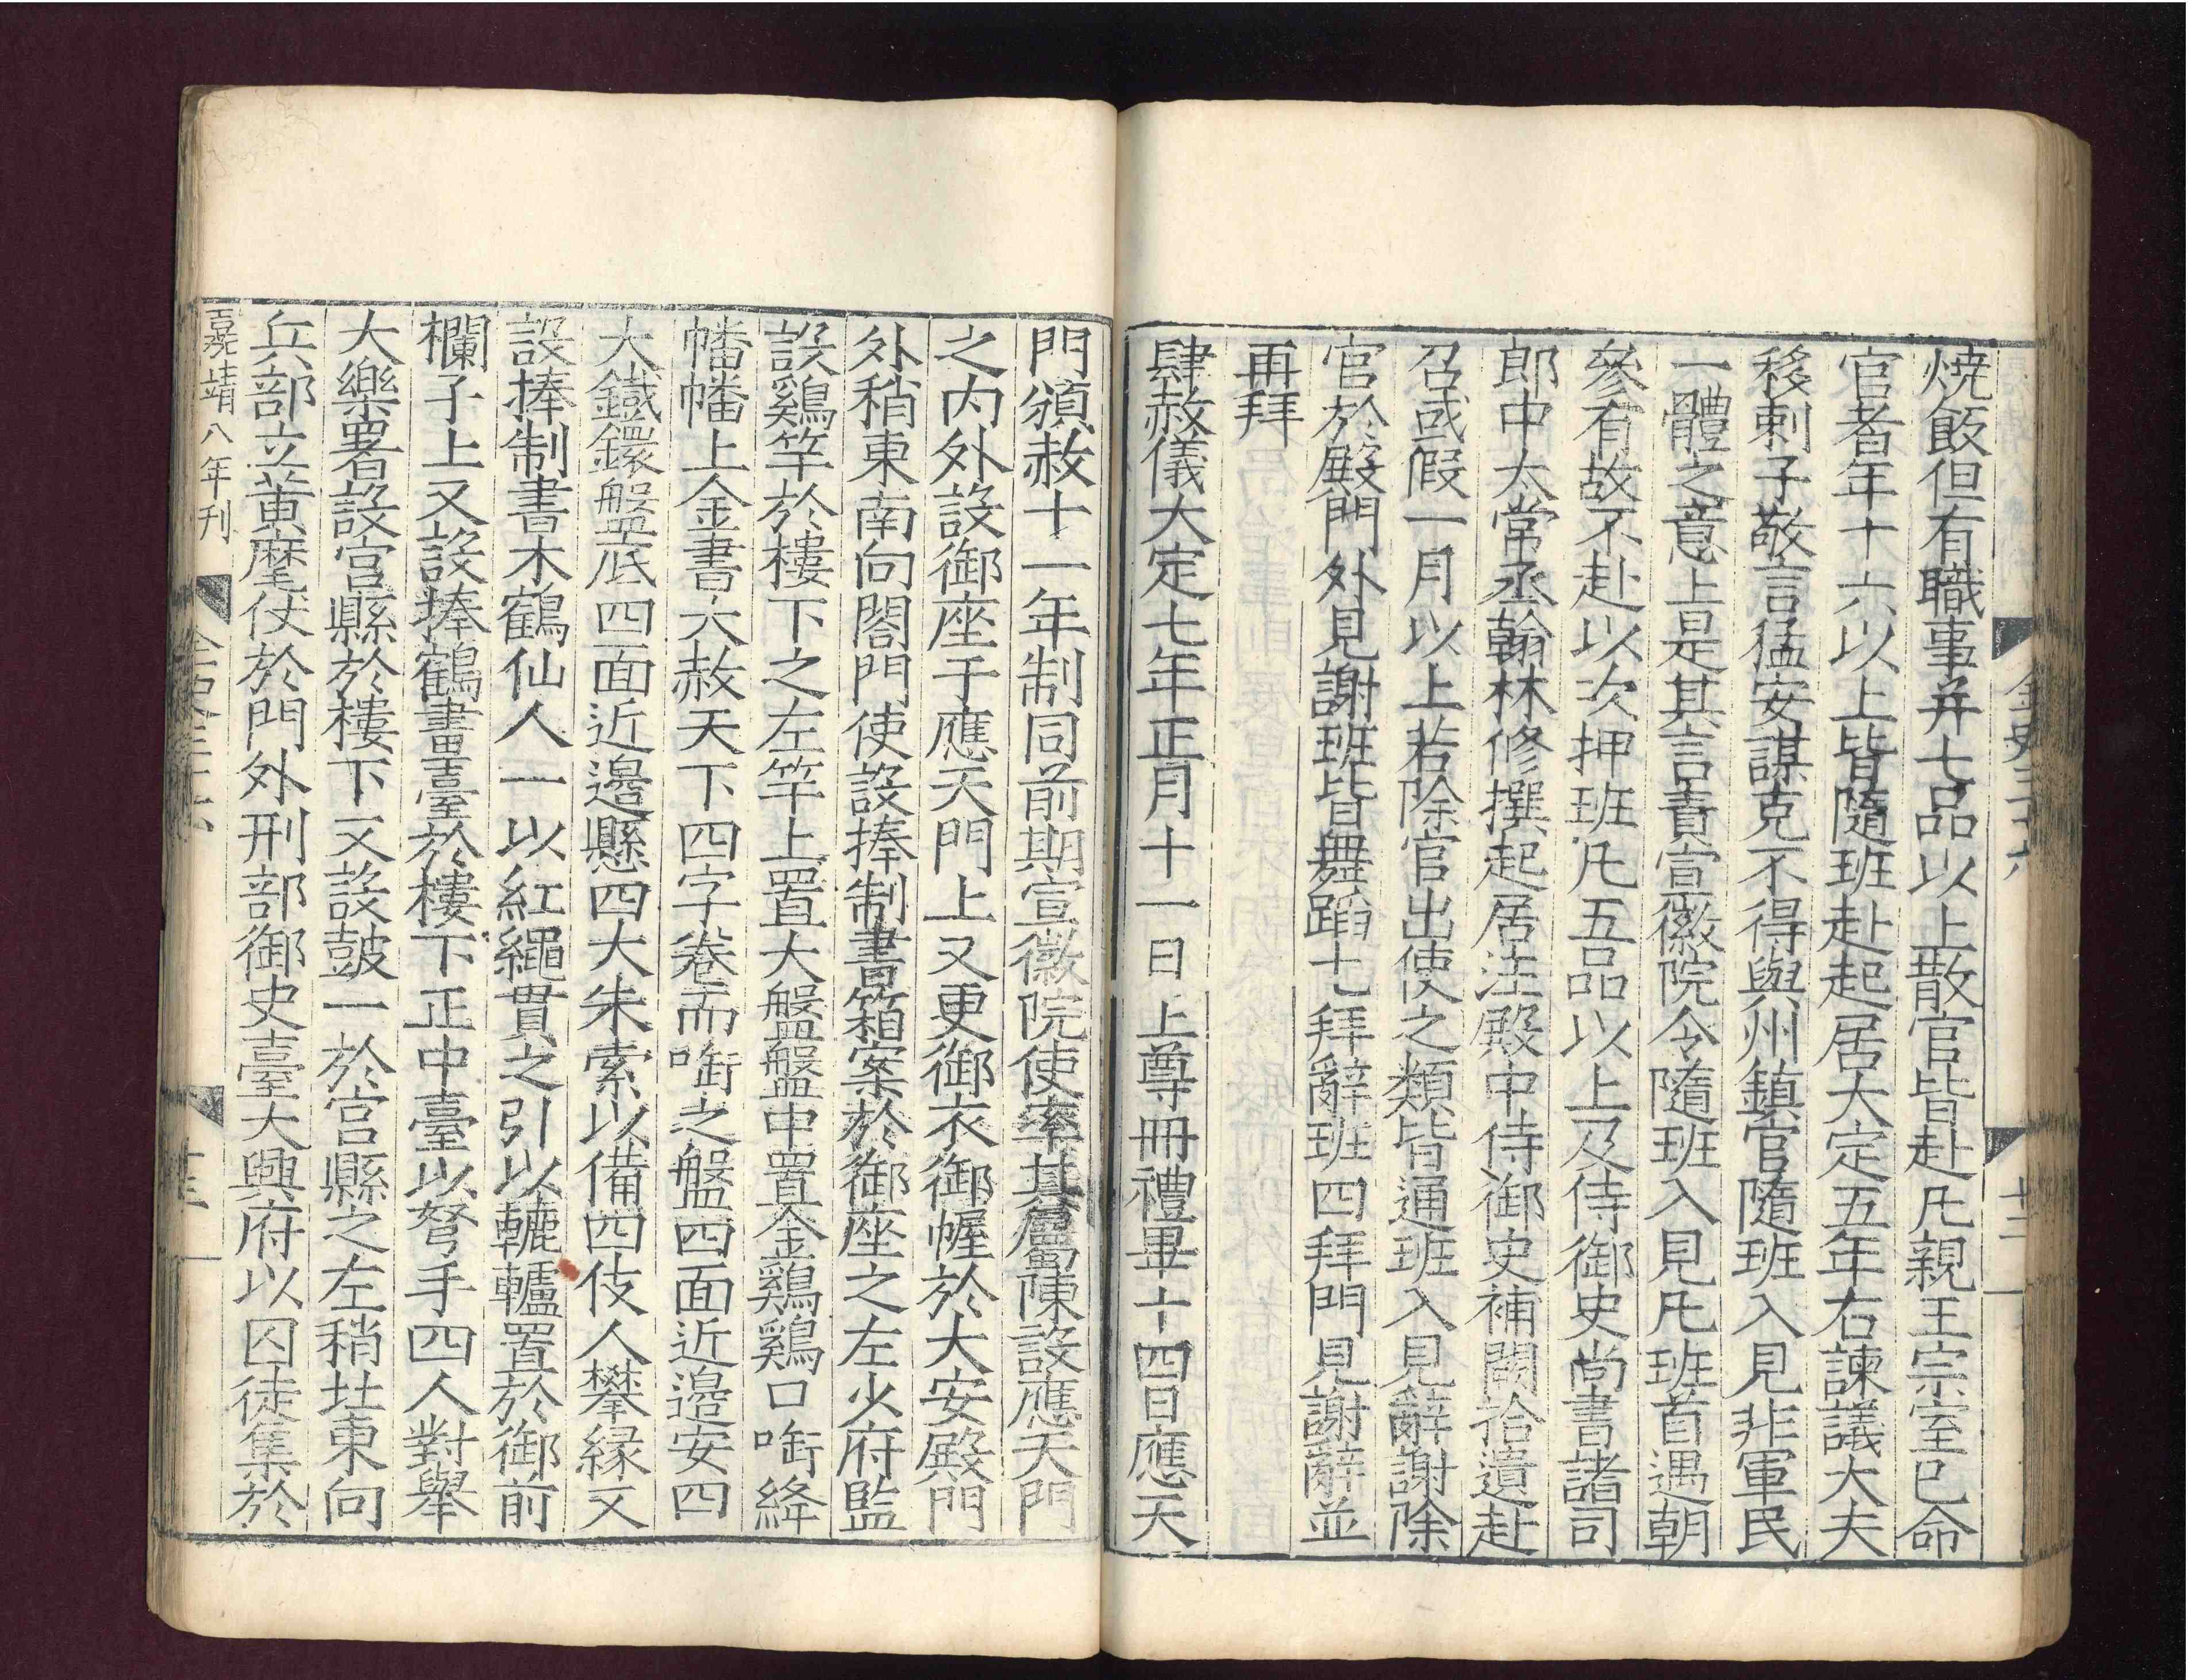 金史三十六
十二
燒飯但有職事并七品以上散官皆赴凡親王宗室已命
官者年十六以上皆隨班赴起居大定五年右諫議大夫
移剌子敬言猛安謀克不得與州鎮官隨班入見非軍民
一體之意上是其言責宣徽院令隨班入見凡班首遇朝
參有故不赴以次押班凡五品以上及侍御史尚書諸司
郎中太常丞翰林修撰起居注殿中侍御史補闕拾遺赴
召或假一月以上若除官出使之類皆通班入見辭謝除
官於殿門外見謝班皆舞蹈七拜辭班四拜門見謝辭並
再拜
肆赦儀大定七年正月十一日上尊冊禮畢十四日應天
門頒赦十一年制同前期宣徽院使率其屬陳設應天門
之内外設御座于應天門上又更御衣御幄於大安殿門
外稍東南向閤門使設捧制書箱案於御座之左少府監
設鷄竿於樓下之左竿上置大盤盤中置金鷄鷄口啣絳
幡幡上金書大赦天下四字卷而啣之盤四面近邊安四
大鐵鐶盤底四面近邊懸四大朱索以備四伎人攀緣又
設捧制書木鶴仙人一以紅繩貫之引以轆轤置於御前
欄子上又設捧鶴畫臺於樓下正中臺以弩手四人對舉
大樂署設宮縣於樓下又設鼓一於宮縣之左稍北東向
兵部立黃麾仗於門外刑部御史臺大興府以囚徒集於
嘉靖八年刊
金史三十六
十三